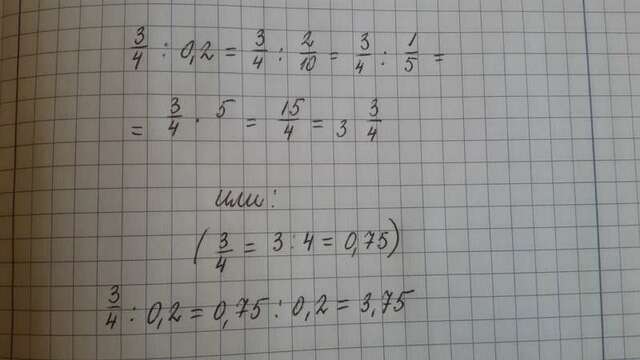 3/4 : 0,2 = 3/4 : 2/10 = 3/4 : 1/5 =
= 3/4 · 5 = 15/4 = 3 3/4
или:
(3/4 = 3 : 4 = 0,75)
3/4 : 0,2 = 0,75 : 0,2 = 3,75